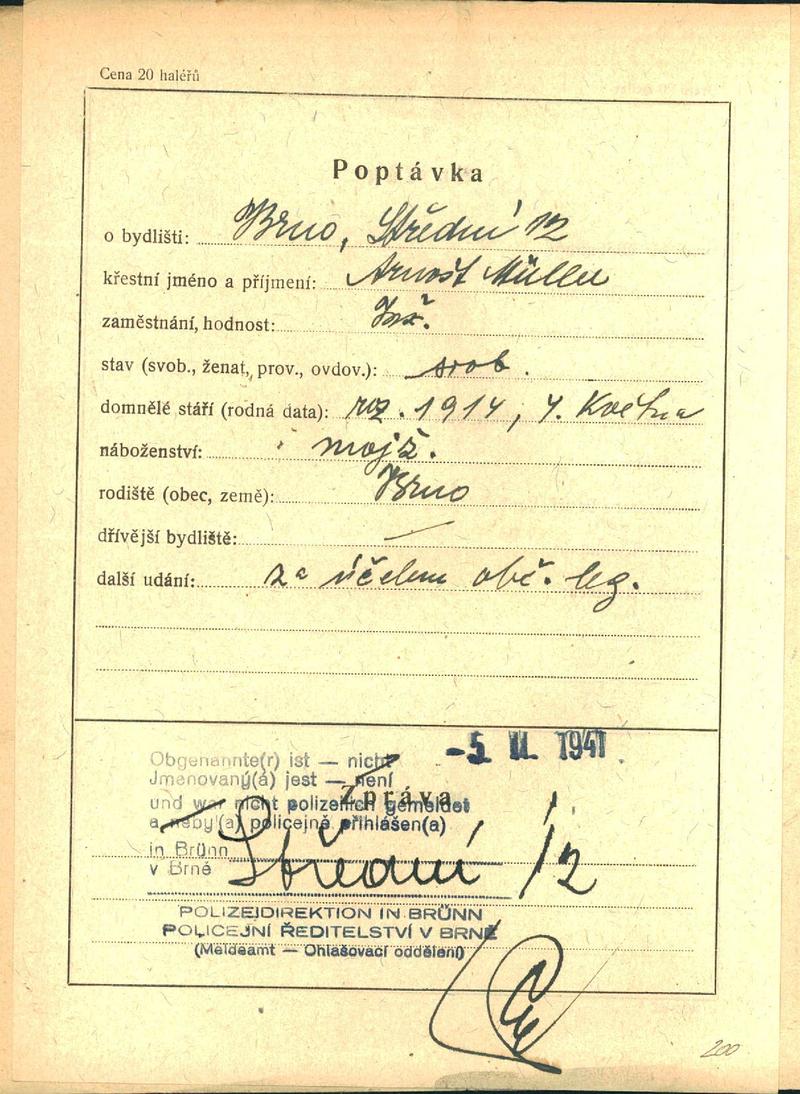 Cena 20 haléřů
Poptávka
o bydlišti: Brno, Střední 12
křestní jméno a příjmení: Arnošt Müller
zaměstnání, hodnost: Inž.
stav (svob., ženat, prov., ovdov.): svob.
domnělé stáří (rodná data): roz. 1914, 4. Května
náboženství: mojž.
rodiště (obec, země): Brno
dřívější bydliště: —
další udání: za účelem obč. leg.
-5. 1941
Obgenannte(r) ist — nicht
Jmenovaný(á) jest — není
Zpráva
und war nicht polizeilich gemeldet
a nebyl(a) policejně přihlášen(a)
in Brünn
v Brně
Střední 12
POLIZEIDIREKTION IN BRÜNN
POLICEJNÍ ŘEDITELSTVÍ V BRNĚ
(Meldeamt — Ohlašovací oddělení)
200